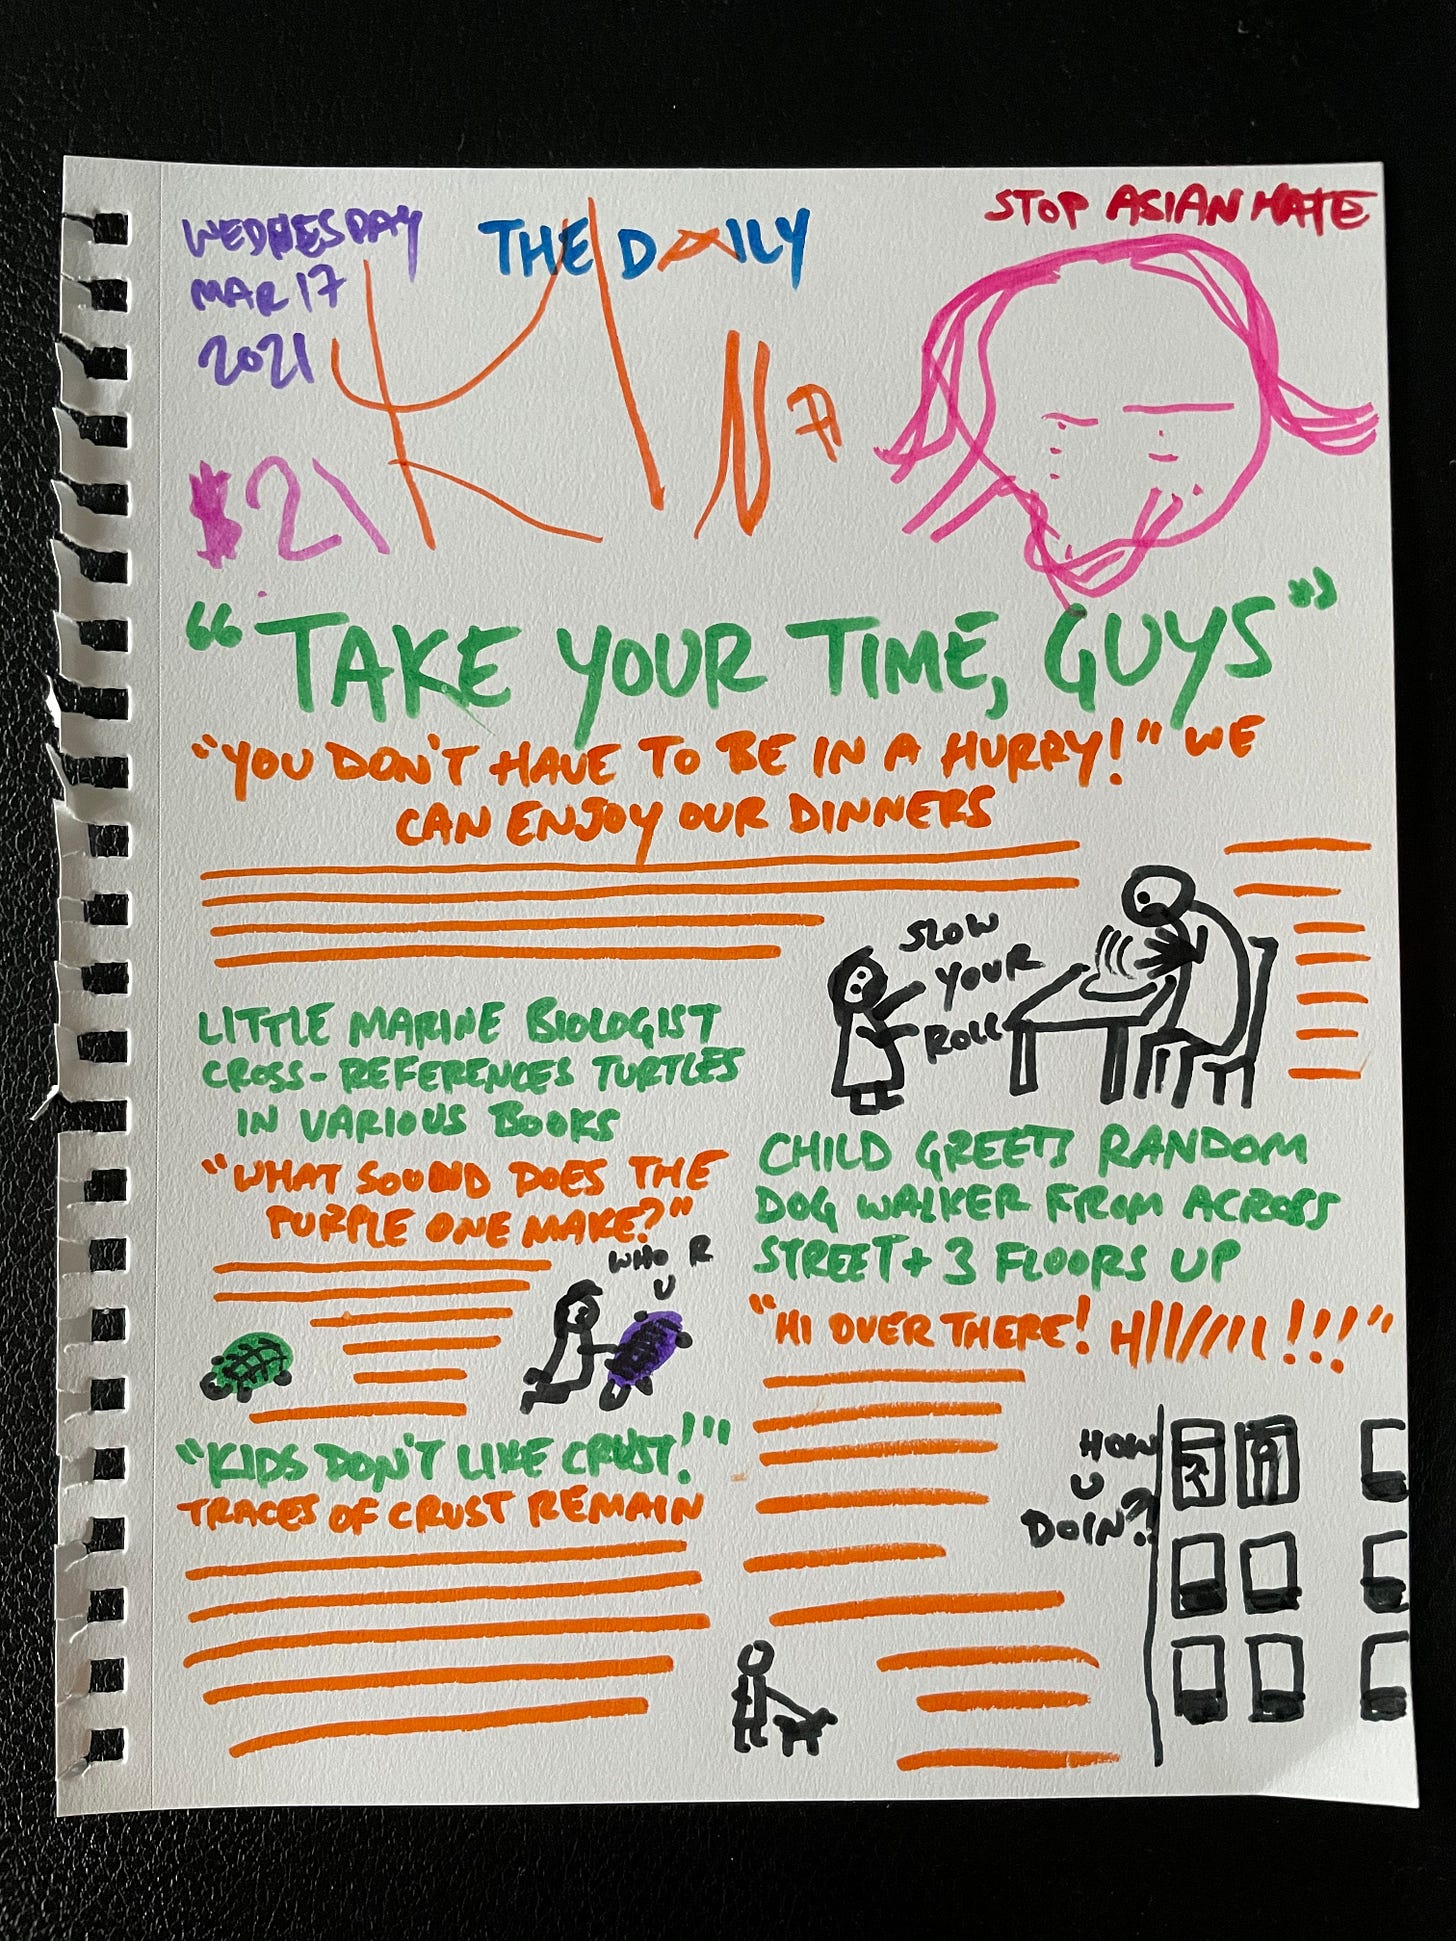 WEDNESDAY
MAR 17
2021
THE DAILY
KINA
STOP ASIAN HATE
$21
"TAKE YOUR TIME, GUYS"
"YOU DON'T HAVE TO BE IN A HURRY!" WE
CAN ENJOY OUR DINNERS
SLOW
YOUR
ROLL
LITTLE MARINE BIOLOGIST
CROSS-REFERENCES TURTLES
IN VARIOUS BOOKS
"WHAT SOUND DOES THE
PURPLE ONE MAKE?"
WHO R
U
"KIDS DON'T LIKE CRUST!"
TRACES OF CRUST REMAIN
CHILD GREETS RANDOM
DOG WALKER FROM ACROSS
STREET + 3 FLOORS UP
"HI OVER THERE! HIIIIIIII!!!"
HOW
U
DOIN?!